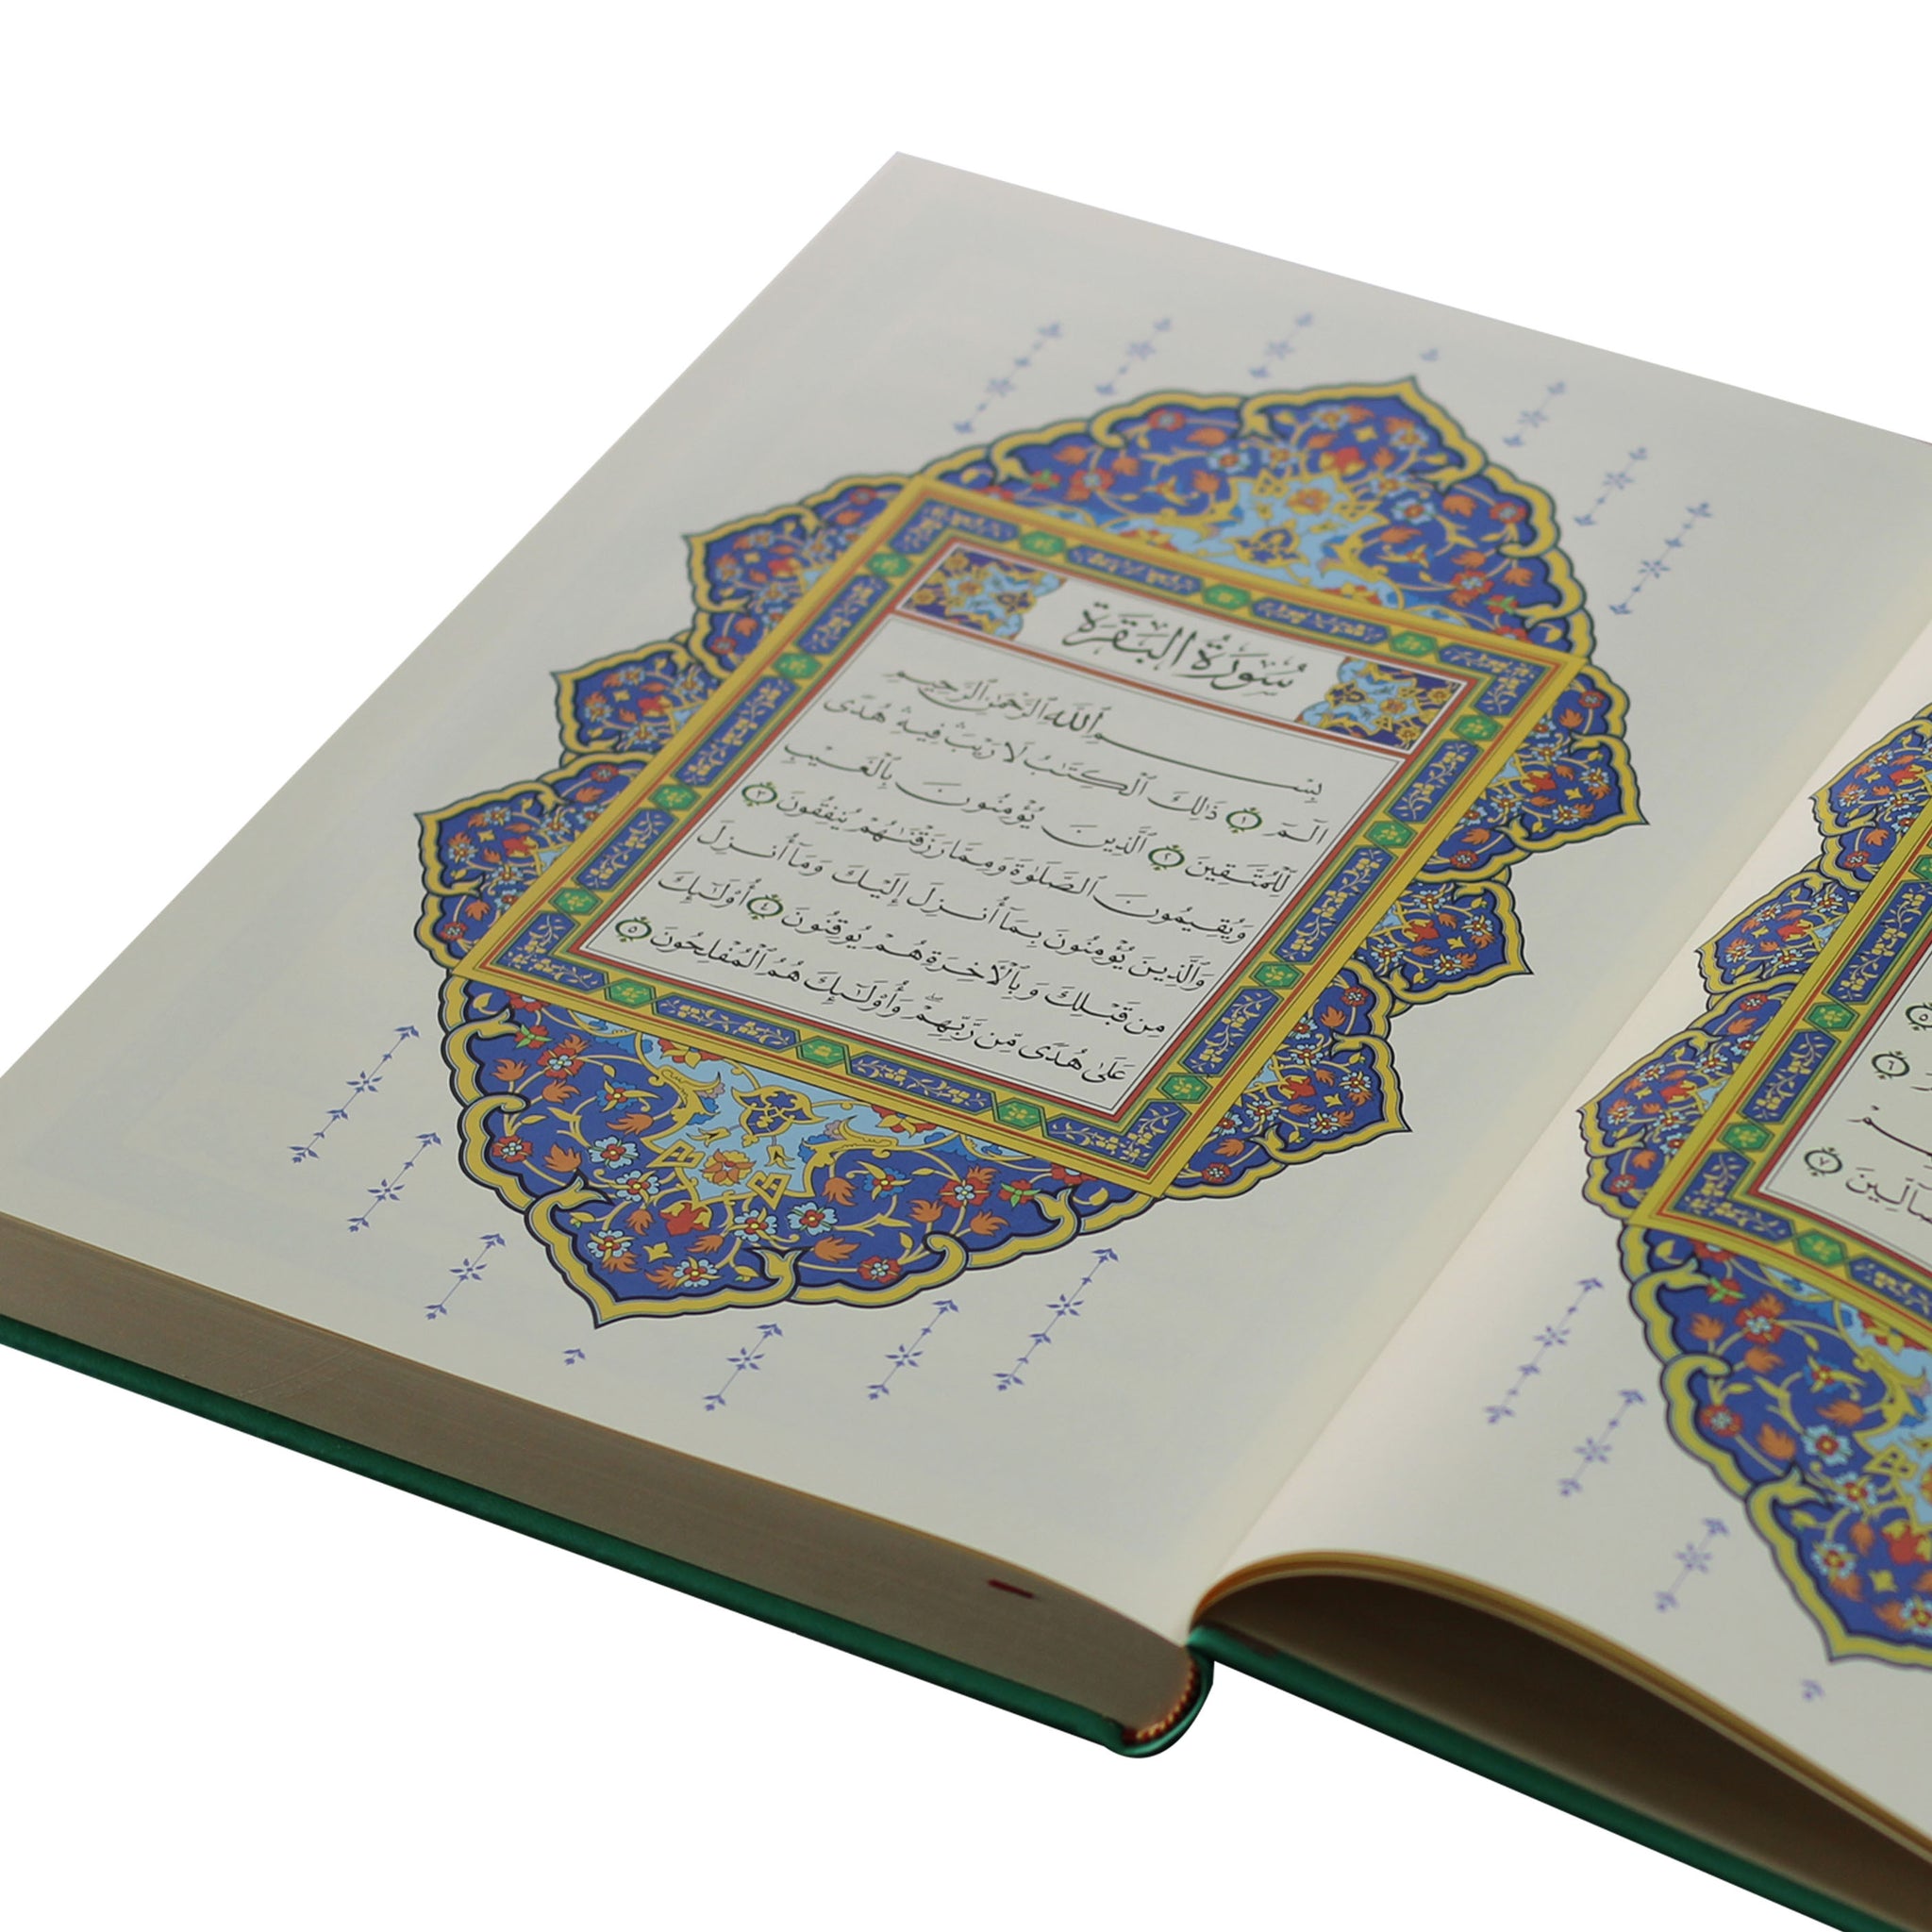 ۵
٦
ـهِمْ
ـضَّآلِّينَ ٧
سُورَةُ الْبَقَرَةِ
بِسْمِ ٱللَّهِ ٱلرَّحْمَٰنِ ٱلرَّحِيمِ
الٓمٓ ١ ذَٰلِكَ ٱلْكِتَٰبُ لَا رَيْبَ ۛ فِيهِ ۛ هُدًى
لِّلْمُتَّقِينَ ٢ ٱلَّذِينَ يُؤْمِنُونَ بِٱلْغَيْبِ
وَيُقِيمُونَ ٱلصَّلَوٰةَ وَمِمَّا رَزَقْنَٰهُمْ يُنفِقُونَ ٣
وَٱلَّذِينَ يُؤْمِنُونَ بِمَآ أُنزِلَ إِلَيْكَ وَمَآ أُنزِلَ
مِن قَبْلِكَ وَبِٱلْءَاخِرَةِ هُمْ يُوقِنُونَ ٤ أُو۟لَٰٓئِكَ
عَلَىٰ هُدًى مِّن رَّبِّهِمْ ۖ وَأُو۟لَٰٓئِكَ هُمُ ٱلْمُفْلِحُونَ ٥